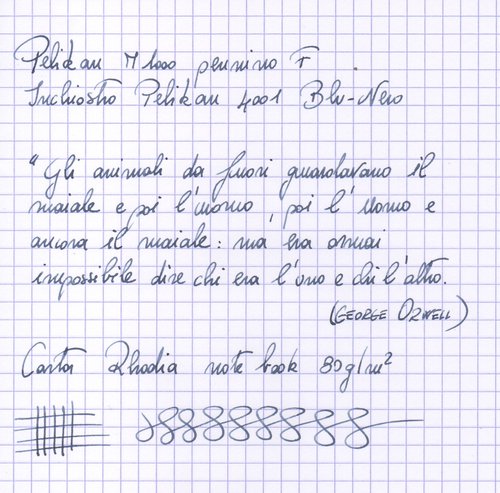 Pelikan M 1000 pennino F
Inchiostro Pelikan 4001 Blu-Nero
"Gli animali da fuori guardavano il
maiale e poi l'uomo, poi l'uomo e
ancora il maiale: ma era ormai
impossibile dire chi era l'uno e chi l'altro.
(GEORGE ORWELL)
Carta Rhodia note book 80g/m²